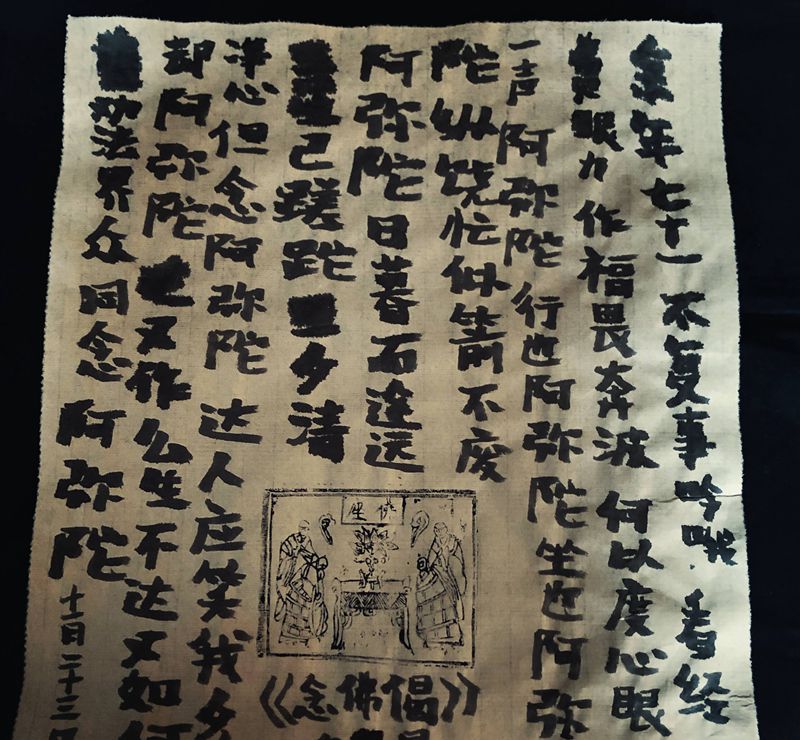 余年七十一不复事吟哦看经
费眼力作福畏奔波何以度心眼
一声阿弥陀行也阿弥陀坐也阿弥
陀纵饶忙似箭不废
阿弥陀日暮而途远
已蹉跎夕清
净心但念阿弥陀达人应笑我多
却阿弥陀又作么生不达又如何
劝法界众同念阿弥陀
月二十三日
坐佛
《念佛偈》